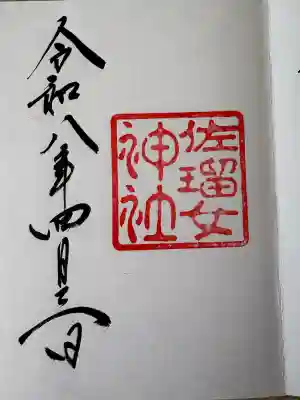 佐瑠女
神社
令和八年四月日